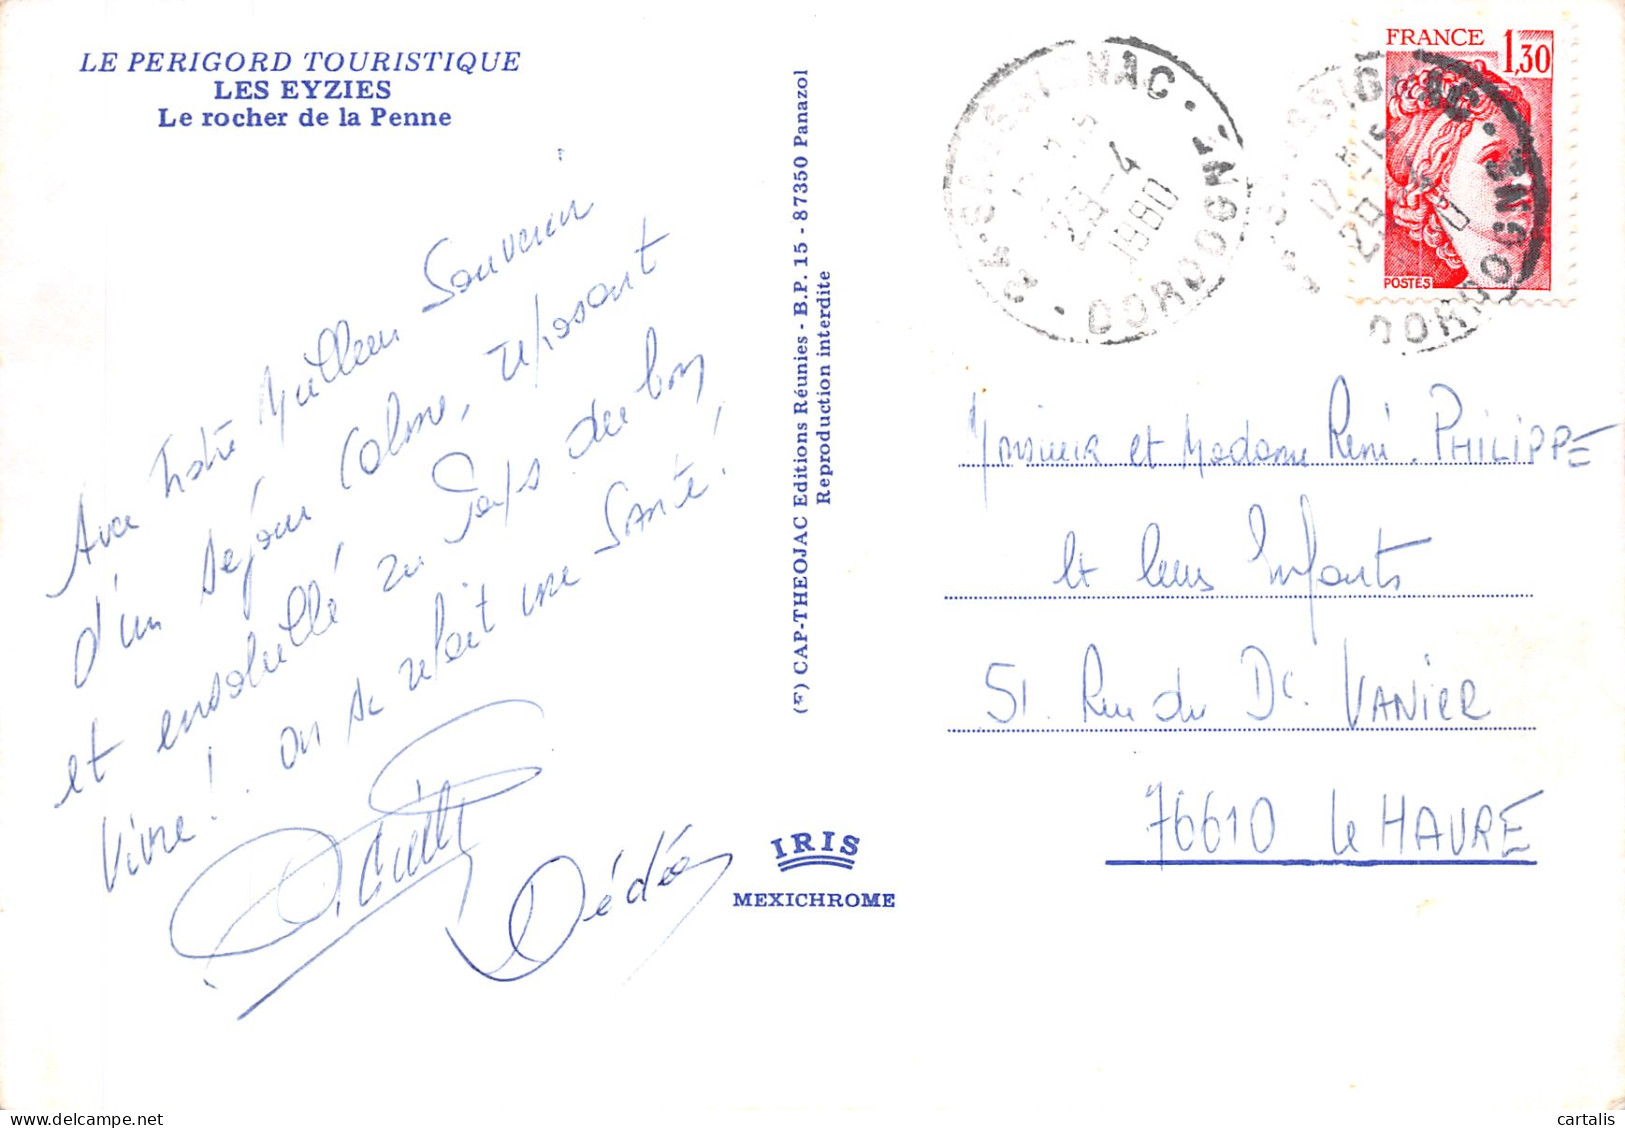 LE PERIGORD TOURISTIQUE
LES EYZIES
Le rocher de la Penne
Avec Notre Meilleur Souvenir
d'un séjour Calme, reposant
et ensoleillé au Pays du bon
Vivre ! On se refait une Santé !
Dédé
(F) CAP-THEOJAC Editions Réunies - B.P. 15 - 87350 Panazol
Reproduction interdite
IRIS
MEXICHROME
FRANCE 1,30
POSTES
24 - SAUSSIGNAC - DORDOGNE
29 - 4
1980
SSIGNAC - DORDOGNE
Monsieur et Madame René PHILIPPE
et leurs Enfants
51. Rue du Dc. VANIER
76610 Le HAVRE
cartalis